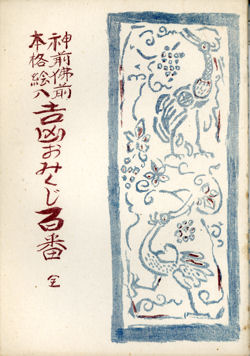 神前佛前
本格絵入
吉凶おみくじ百番
全